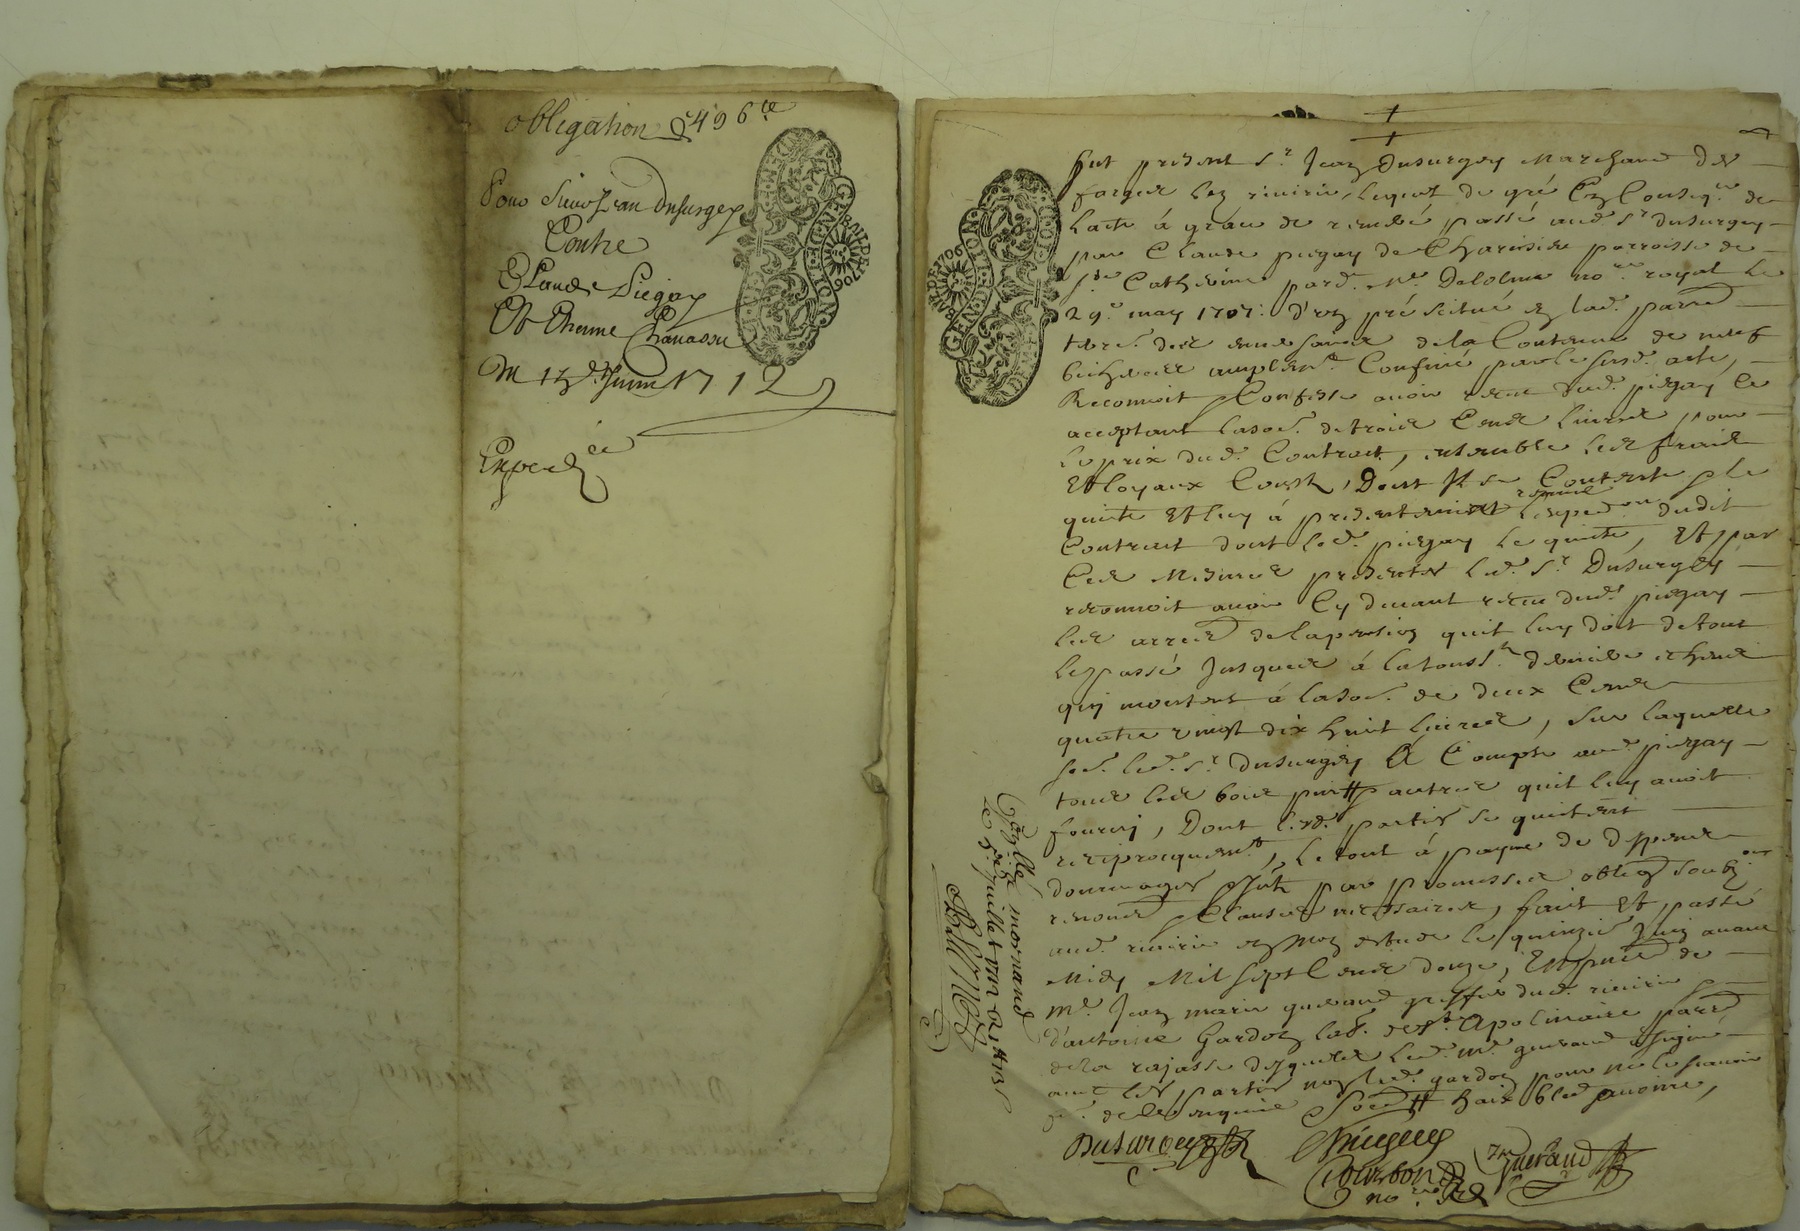 obligation de 496 lt
Pour Sieur Jean Dusurgey
Contre
Claude Piegay
Et Etienne Chanassu
Du 15e Juin 1712
Exped ée
GENERAL DE 1706
GENERATION
Fut present Sr Jean Dusurgey Marchand des
forges lez riuirie, lequel de gré En Conseq.ce de
lacte à grace de remeré passé aud. Sr dusurgey
par Claude piegay de Charisieu parroisse de
Ste Catherine pard. Me Delolme no.re royal le
29e may 1707. d'un pré scitué en lad. parr.
de la Contenue de neuf
bicherées amplem.t Confiné par le susd. acte,
Reconnoit & Confesse auoir receu dud. piegay le
acceptant la som. de trois Cens liures pour
le prix dud. Contract, ensemble les frais
Et loyaux Cousts, Dont Il se Contente & le
quitte Et luy à presentement remis lexped.on dudit
Contract dont led. piegay le quitte, Et par
Ces Mesmes presentes led. Sr Dusurgey
reconnoit auoir Cy deuant receu dud. piegay
les arrer. de la pension quil luy doit de tout
le passé Jusques à la touss.ts derniere echeue
qui montent à la som. de deux Cens
quatre vingt dix huit liures, sur laquelle
som. led. Sr Dusurgey A Compté aud. piegay
tous les bois & autres quil luy auoit
fourny, Dont lesd. parties se quittent
reciproquem.t, Le tout à payne de depens
dommages & Jnts par promesses oblig.on soub.ons
renon.s & Clauses necessaires, fait Et passé
aud. riuirie en mon estude le quinzie Juin auant
Midy Mil sept Cens douze, En pnce de
Me Jean marie gueraud dud. riuirie &
d'antoine Gardon lab. de St Apolinaire parr.
de la rajasse desquels led. Me gueraud a signé
auec les parties non led. gardon pour ne le scauoir
de ce enquis
Dusurgey
Piegay
JM Gueraud
Courbon
no.re R.
Coņllé à mornand
le 5e juillet 1712 R.